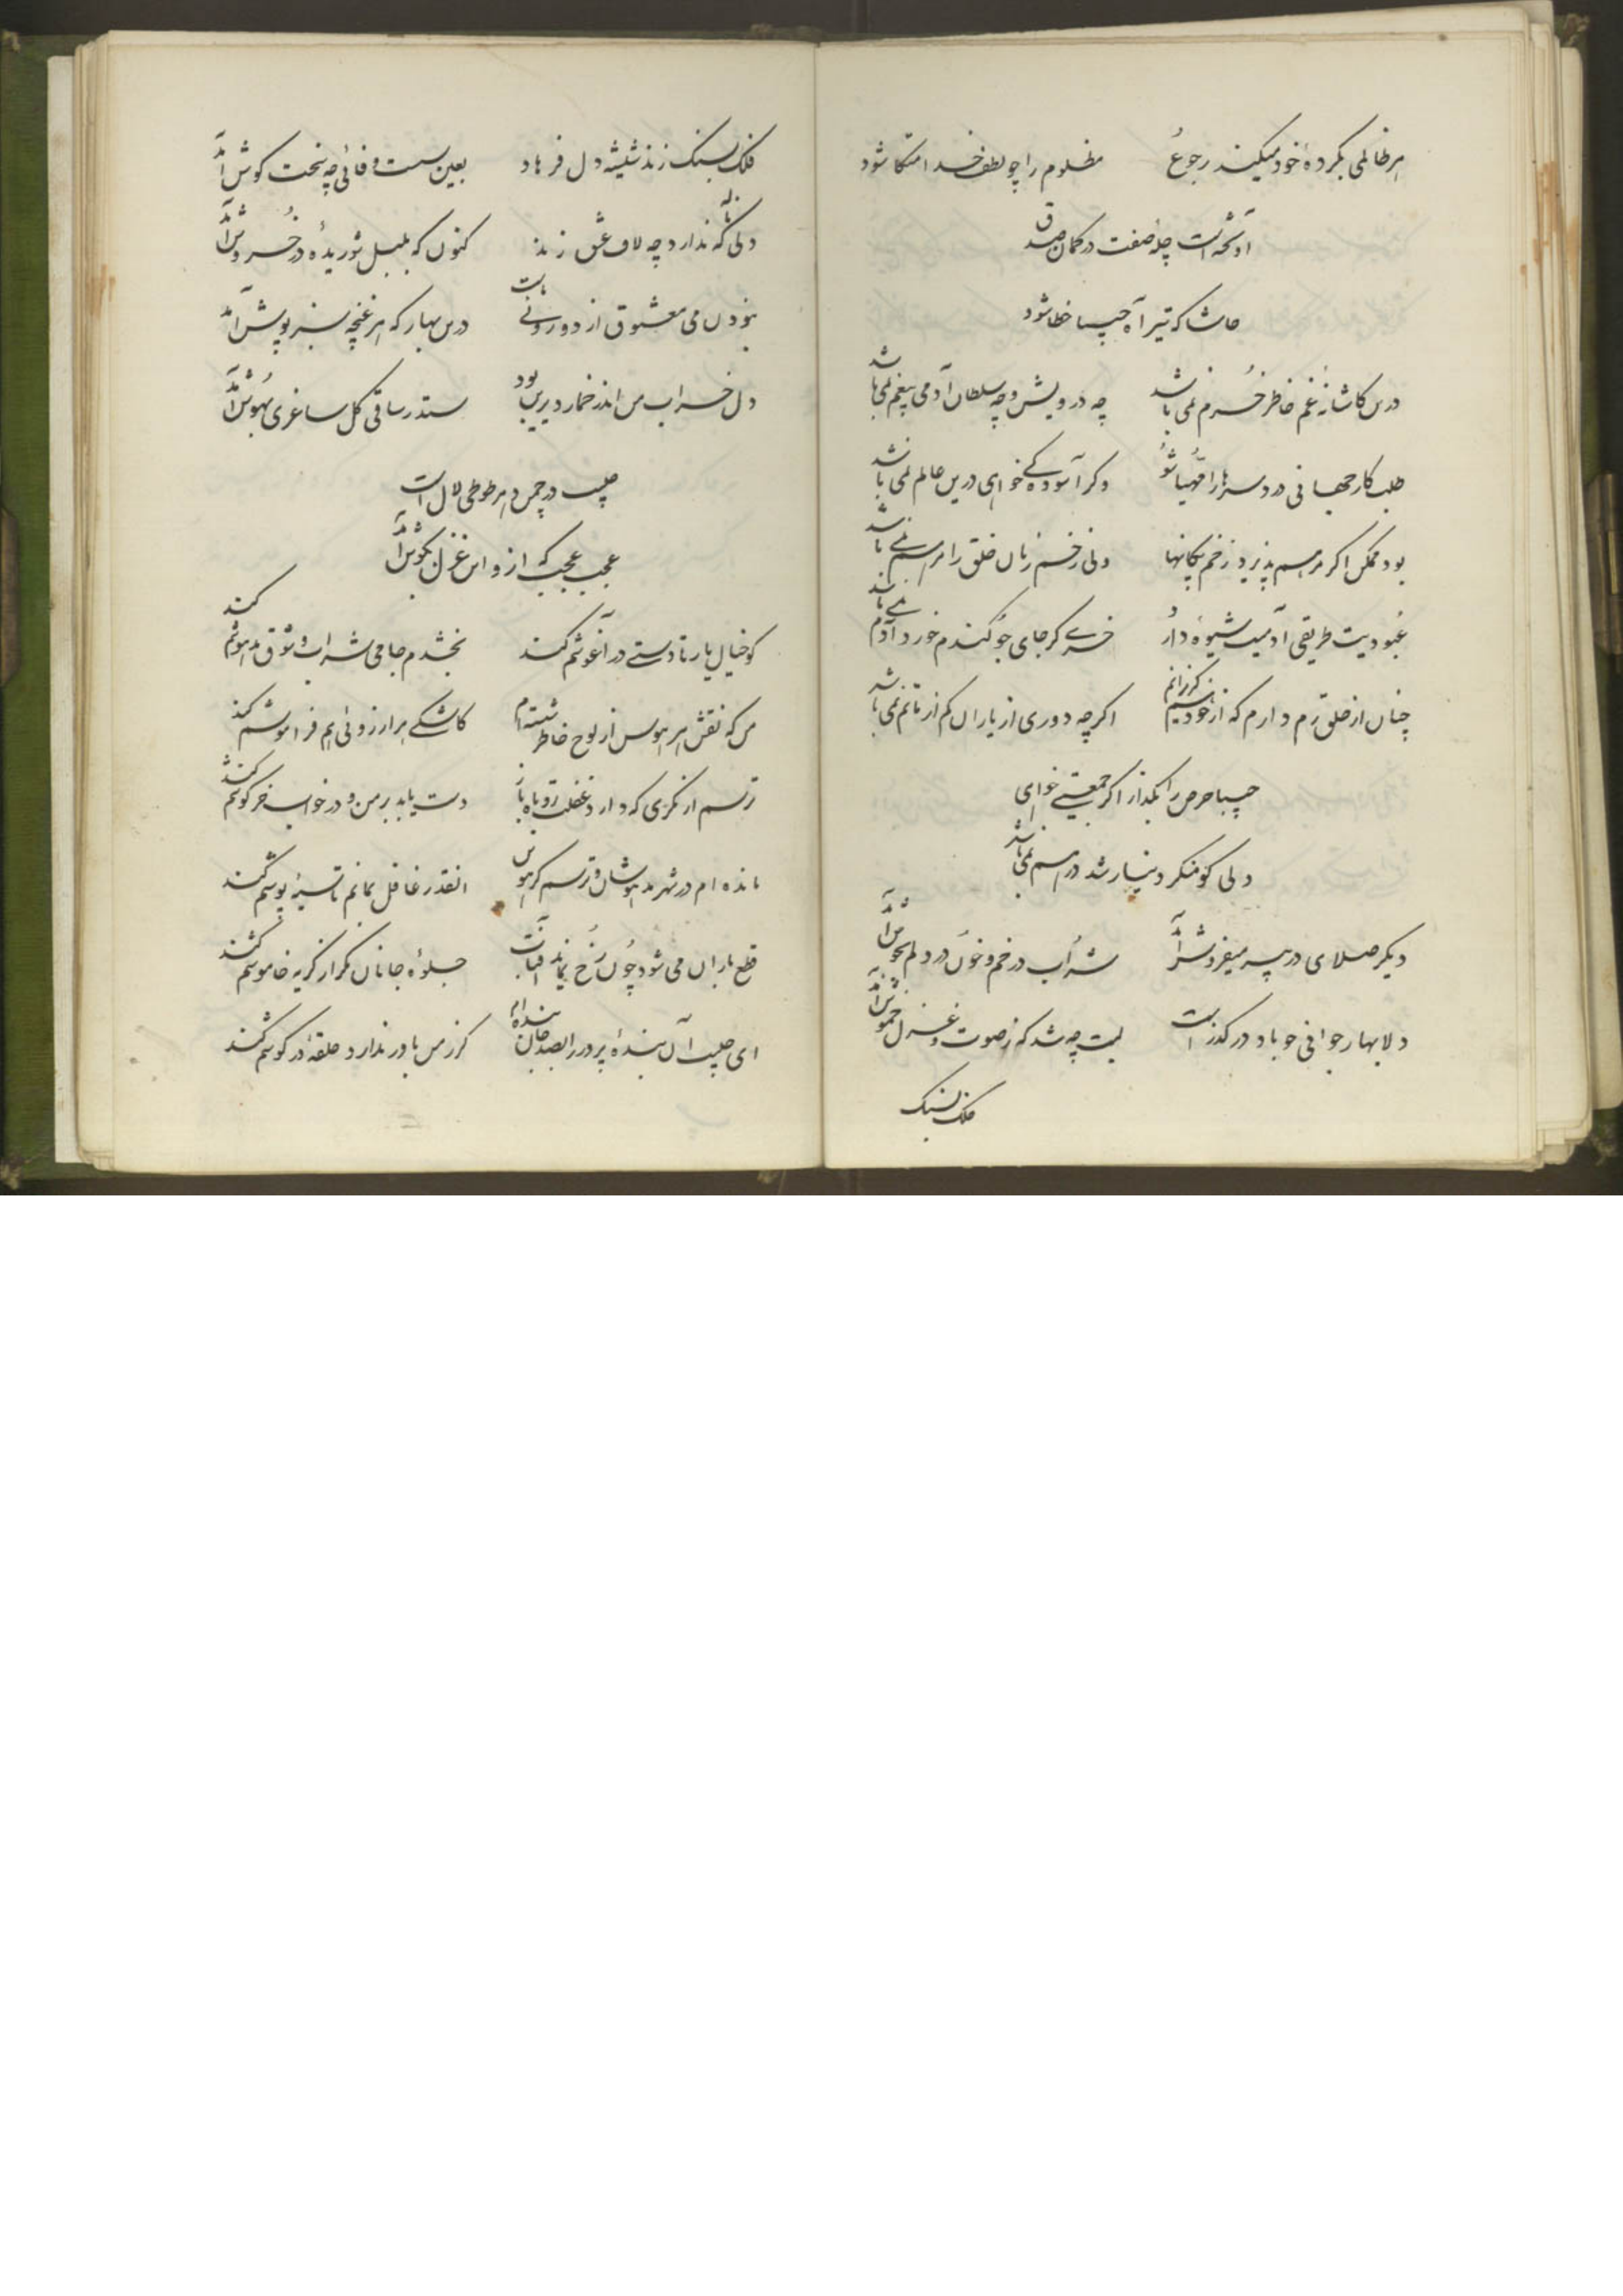 هر ظالمی بکردهٔ خود میکند رجوع مظلوم را چو لطف خدا متکا شود
آویخته است چله صفت در کمان صدق
حاشا که تیر آه حبیبا خطا شود
درین کاشانهٔ غم خاطر خرم نمی باشد چه درویش و چه سلطان آدمی بیغم نمی باشد
طلبکار جهانی دردسرها را مهیا شو وگر آسوده کے خواهی درین عالم نمی باشد
بود ممکن اگر مرهم پذیرد زخم پیکانها ولی زخم زبان خلق را مرهم نمے باشد
عبودیت طریقی آدمیت شیوهٔ دارد خرے گر جای جو گندم خورد آدم نمے باشد
چنان از خلق رم دارم که از خود نیم گریزانم اگرچه دوری از یاران کم از ماتم نمی باشد
حبیبا حرص را بگذار اگر جمعیتے خواهی
ولی کو منکر دینار شد درهم نمی باشد
دیگر صلای در پیر میفروش آمد شراب در خم و خون در دلم بجوش آمد
دلا بهار جوانی چو باد در گذر است لبت چه شد که ز صوت و غزل خموش آمد
فلک بسنگ
فلک بسنگ زند شیشه دل فرهاد بعین سست وفائی چه سخت کوش آمد
دلی که ناله ندارد چه لاف عشق زند کنون که بلبل شوریده در خروش آمد
نبودن می معشوق از دوروئے هاست درین بهار که هر غنچه سبز پوش آمد
دل خراب من اندر خمار دیرین بود ستد ز ساقی گل ساغری بهوش آمد
حبیب در چمن هر طوطی لال است
عجب عجب که ازو این غزل بگوش آمد
کو خیال یار تا دستے در آغوشم کند بخشدم جامی شراب و شوق مدهوشم کند
من که نقش هر هوس از لوح خاطر شسته ام کاشکے هر آرزوئی هم فراموشم کند
ترسم از گرگی که دارد غفلت روباه باز دست یابد بر من و در خواب خرگوشم کند
مانده ام در شهر مدهوشان و ترسم گر هوس انقدر غافل نمانم تا سیه پوشم کند
قطع باران می شود چون رخ نماید آفتاب جلوهٔ جانان مگر از گریه خاموشم کند
ای حبیب آن بنده پرور را بصد جان بنده ام گر ز من باور ندارد حلقه در گوشم کند